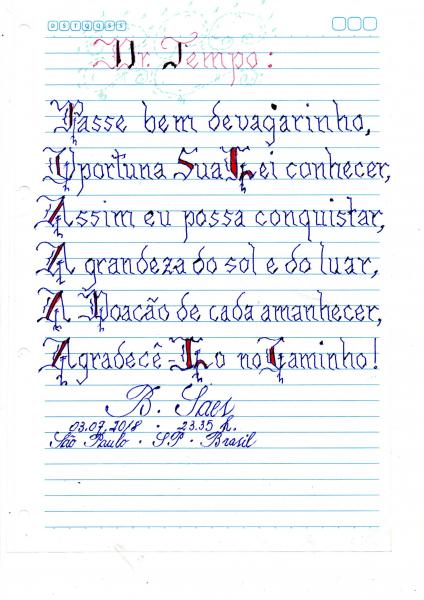 D S T Q Q S S
Dr. Tempo:
Passe bem devagarinho,
Oportuna Sua Lei conhecer,
Assim eu possa conquistar,
A grandeza do sol e do luar,
A Doacão de cada amanhecer,
Agradecê-Lo no Caminho!
B. Saes
03.07.2018 . 23.35 h.
São Paulo . S.P . Brasil